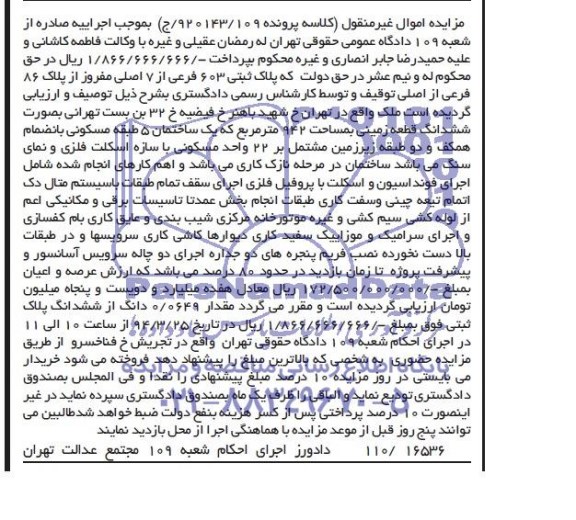 مزایده اموال غیرمنقول (کلاسه پرونده ۹۲۰۱۴۳/۱۰۹/ج) بموجب اجراییه صادره از
شعبه ۱۰۹ دادگاه عمومی حقوقی تهران له رمضان عقیلی و غیره با وکالت فاطمه کاشانی و
علیه حمیدرضا جابر انصاری و غیره محکوم بپرداخت -/۱/۸۶۶/۶۶۶/۶۶۶ ریال در حق
محکوم له و نیم عشر در حق دولت که پلاک ثبتی ۶۰۳ فرعی از ۷ اصلی مفروز از پلاک ۸۶
فرعی از اصلی توقیف و توسط کارشناس رسمی دادگستری بشرح ذیل توصیف و ارزیابی
گردیده است ملک واقع در تهران خ شهید باهنر خ فیضیه خ ۳۲ بن بست تهرانی بصورت
ششدانگ قطعه زمینی بمساحت ۹۴۲ مترمربع که یک ساختمان ۵ طبقه مسکونی بانضمام
همکف و دو طبقه زیرزمین مشتمل بر ۲۲ واحد مسکونی با سازه اسکلت فلزی و نمای
سنگ می باشد ساختمان در مرحله نازک کاری می باشد و اهم کارهای انجام شده شامل
اجرای فونداسیون و اسکلت با پروفیل فلزی اجرای سقف تمام طبقات باسیستم متال دک
اتمام تیغه چینی وسفت کاری طبقات انجام بخش عمدتا تاسیسات برقی و مکانیکی اعم
از لوله کشی سیم کشی و غیره موتورخانه مرکزی شیب بندی و عایق کاری بام کفسازی
و اجرای سرامیک و موزاییک سفید کاری دیوارها کاشی کاری سرویسها و در طبقات
بالا دست نخورده نصب فریم پنجره های دو جداره اجرای دو چاله سرویس آسانسور و
پیشرفت پروژه تا زمان بازدید در حدود ۸۰ درصد می باشد که ارزش عرصه و اعیان
بمبلغ -/۱۷۲/۵۰۰/۰۰۰/۰۰۰ ریال معادل هفده میلیارد و دویست و پنجاه میلیون
تومان ارزیابی گردیده است و مقرر می گردد مقدار ۰/۰۶۴۹ دانگ از ششدانگ پلاک
ثبتی فوق بمبلغ -/۱/۸۶۶/۶۶۶/۶۶۶ ریال در تاریخ ۹۴/۳/۲۵ از ساعت ۱۰ الی ۱۱
در اجرای احکام شعبه ۱۰۹ دادگاه حقوقی تهران واقع در تجریش خ فناخسرو از طریق
مزایده حضوری به شخصی که بالاترین مبلغ را پیشنهاد دهد فروخته می شود خریدار
می بایستی در روز مزایده ۱۰ درصد مبلغ پیشنهادی را نقدا و فی المجلس بصندوق
دادگستری تودیع نماید و الباقی را ظرف یک ماه بصندوق دادگستری سپرده نماید در غیر
اینصورت ۱۰ درصد پرداختی پس از کسر هزینه بنفع دولت ضبط خواهد شدطالبین می
توانند پنج روز قبل از موعد مزایده با هماهنگی اجرا از محل بازدید نمایند
۱۶۵۳۶ /۱۱۰ دادورز اجرای احکام شعبه ۱۰۹ مجتمع عدالت تهران
ParsNamadData
پایگاه اطلاع رسانی مناقصه و مزایده
۰۲۱-۸۸۳۴۹۶۷۰-۵